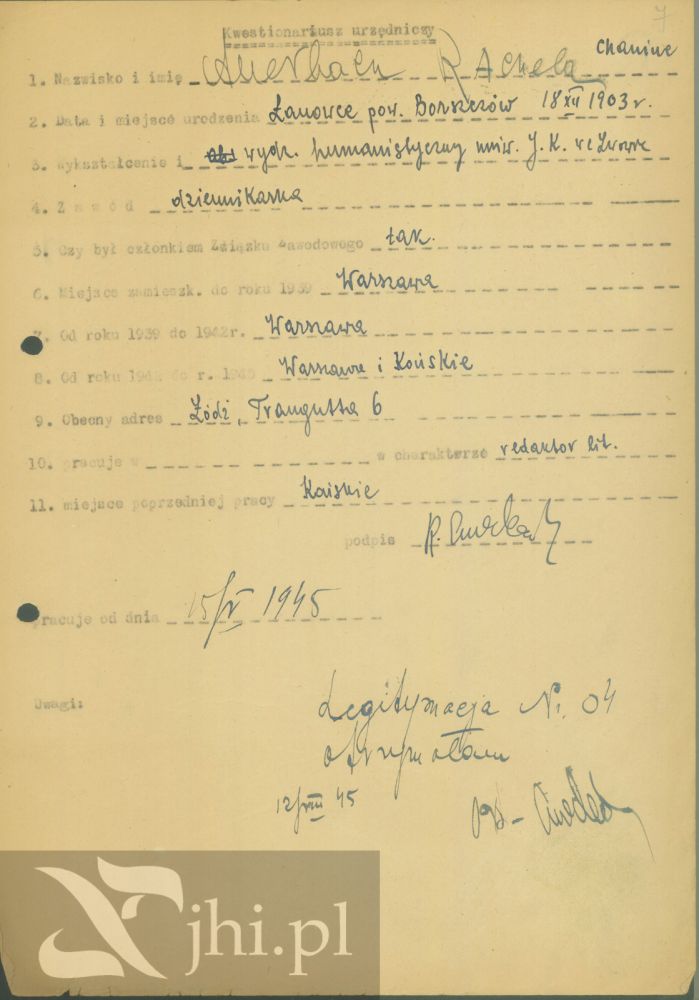 7
Kwestionariusz urzędniczy
1. Nazwisko i imię Auerbach Rachela Chanine
2. Data i miejsce urodzenia Łanowce pow. Borszczów 18 XII 1903 r.
3. Wykształcenie i wydz. humanistyczny uniw. J. K. we Lwowie
4. Zawód dziennikarka
5. Czy był członkiem Związku Zawodowego tak.
6. Miejsce zamieszk. do roku 1939 Warszawa
7. Od roku 1939 do 1942r. Warszawa
8. Od roku 1942 do r. 1945 Warszawa i Końskie
9. Obecny adres Łódź, Traugutta 6
10. pracuje w w charakterze redaktor lit.
11. miejsce poprzedniej pracy
podpis R. Auerbach
pracuje od dnia 15/IV 1945
Uwagi:
Legitymacja Nr. 04
otrzymałam
12/VIII 45
jhi.pl